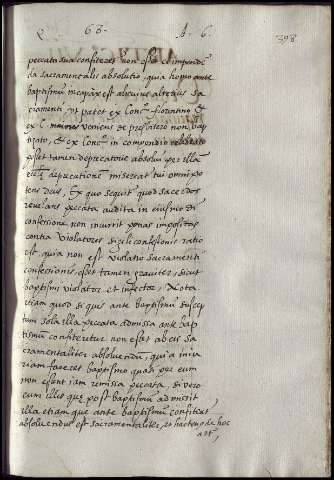 Q. 68. A. 6. 398
peccata sua confiteret non esset ei impendē
da sacramentalis absolutio, quia homo ante
baptismū incapax est alicuius alterius sa
cramenti ut patet ex Conc. florentino &
ex c. veniens de presbitero non bap
tizato, & ex Conc. in compendio
posset tamen deprecatorie absolui per illa
deprecationē misereat tui omnipo
tens deus, Ex quo sequit quod sacerdos
revelans peccata audita in eiusmodi
confessione non incurrit poenas impositas
contra violatores sigilli confessionis ratio
est, quia non est violatio sacramenti
confessionis, esset tamen graviter, sicut
baptismi violator et infector, Nota
etiam quod si quis ante baptismū suscep
tum sola illa peccata admissa ante bap
tismū confiteretur non esset ab eis sa
cramentaliter absolvendus, quia iniu
riam faceret baptismo quasi per eum
non essent iam remissa peccata, si vero
cum illis que post baptismū admisit
illa etiam que ante baptismū confitext
absolvendus est sacramentaliter, et hactenus de hoc
art.